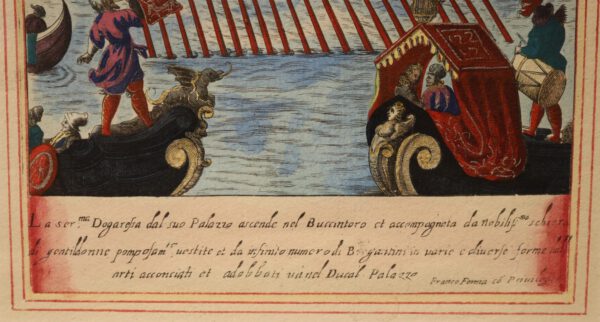 La ser.ma Dogaressa dal suo Palazzo ascende nel Buccintoro et accompagneta da nobiliss.ma schiera
di gentildonne pomposam.te vestite et da infinito numero di Brigantini in varie e diverse forme
arti acconciati et adobbati và nel Ducal Palazzo
Franco Forma cō Privileg